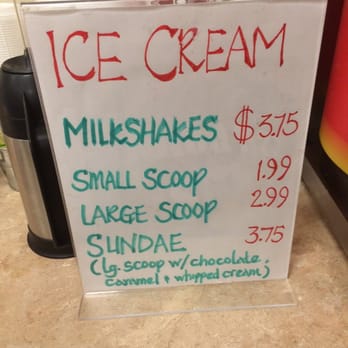 ICE CREAM
MILKSHAKES $3.75
SMALL SCOOP 1.99
LARGE SCOOP 2.99
SUNDAE 3.75
(lg. scoop w/chocolate,
caramel + whipped cream)